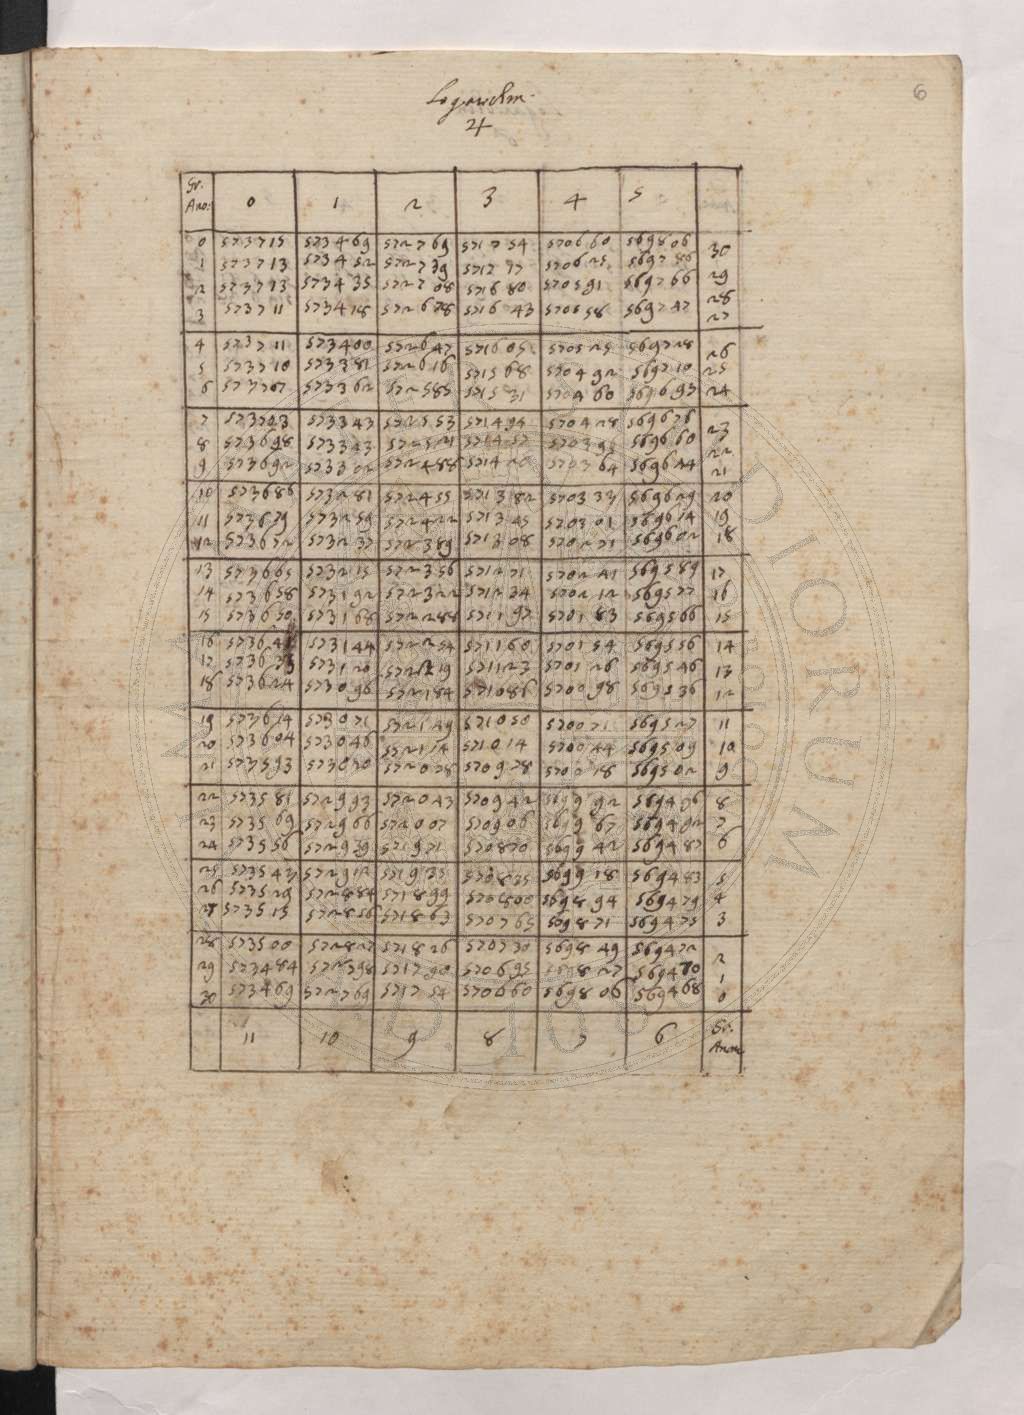 6
Logarithm.
♃
Gr. Ano: 0 1 2 3 4 5
0 573715 573469 572769 571754 570660 569806 30
1 573713 573452 572739 571717 570625 569786 29
2 573713 573435 572708 571680 570591 569766 28
3 573711 573418 572678 571643 570558 569747 27
4 573711 573400 572647 571605 570525 569728 26
5 573710 573381 572616 571568 570492 569710 25
6 573707 573362 572585 571531 570460 569693 24
7 573703 573343 572553 571494 570428 569676 23
8 573698 573323 572521 571457 570396 569660 22
9 573692 573302 572488 571420 570364 569644 21
10 573686 573281 572455 571382 570333 569629 20
11 573679 573259 572422 571345 570301 569614 19
12 573652 573237 572389 571308 570271 569602 18
13 573665 573215 572356 571271 570241 569589 17
14 573658 573192 572322 571234 570212 569577 16
15 573650 573168 572288 571197 570183 569566 15
16 573641 573144 572254 571160 570154 569556 14
17 573633 573120 572219 571123 570126 569546 13
18 573624 573096 572184 571086 570098 569536 12
19 573614 573071 572149 571050 570071 569527 11
20 573604 573046 572114 571014 570044 569509 10
21 573593 573020 572078 570978 570018 569502 9
22 573581 572993 572043 570942 569992 569496 8
23 573569 572966 572007 570906 569967 569492 7
24 573556 572939 571971 570870 569942 569487 6
25 573543 572912 571935 570835 569918 569483 5
26 573529 572884 571899 570800 569894 569479 4
27 573515 572856 571863 570765 569871 569475 3
28 573500 572827 571826 570730 569849 569472 2
29 573484 572798 571790 570695 569827 569470 1
30 573469 572769 571754 570660 569806 569468 0
11 10 9 8 7 6 Gr. Anom.